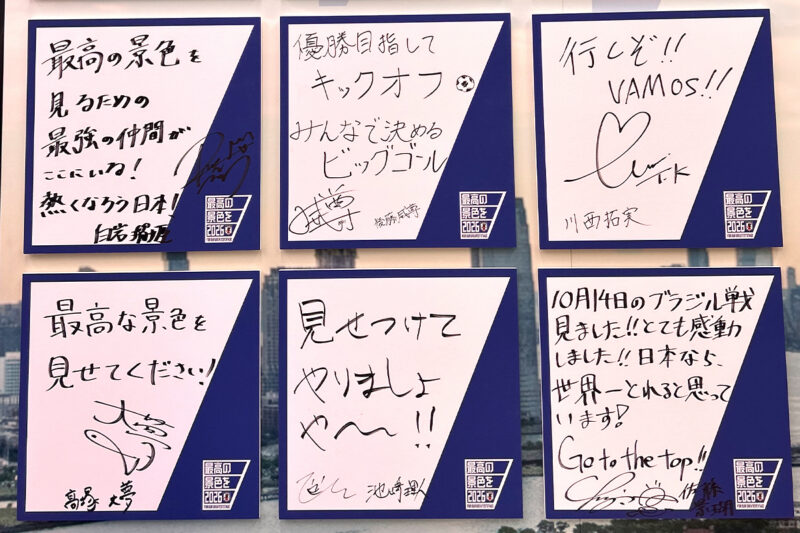 最高の景色を
見るための
最強の仲間が
ここにいね!
熱くなろう日本!
白岩瑠姫
最高の
景色を
2026
優勝目指して
キックオフ
みんなで決める
ビッグゴール
威尊
後藤威尊
最高の
景色を
2026
行くぞ!!
VAMOS!!
T.K
川西拓実
最高の
景色を
2026
最高な景色を
見せてください!
大夢
髙塚 大夢
最高の
景色を
2026
見せつけて
やりましょ
や〜〜!!
池﨑理人
最高の
景色を
2026
10月14日のブラジル戦
見ました!!とても感動
しました!!日本なら、
世界一とれると思って
います!
Go to the top!!
佐藤
景瑚
最高の
景色を
2026